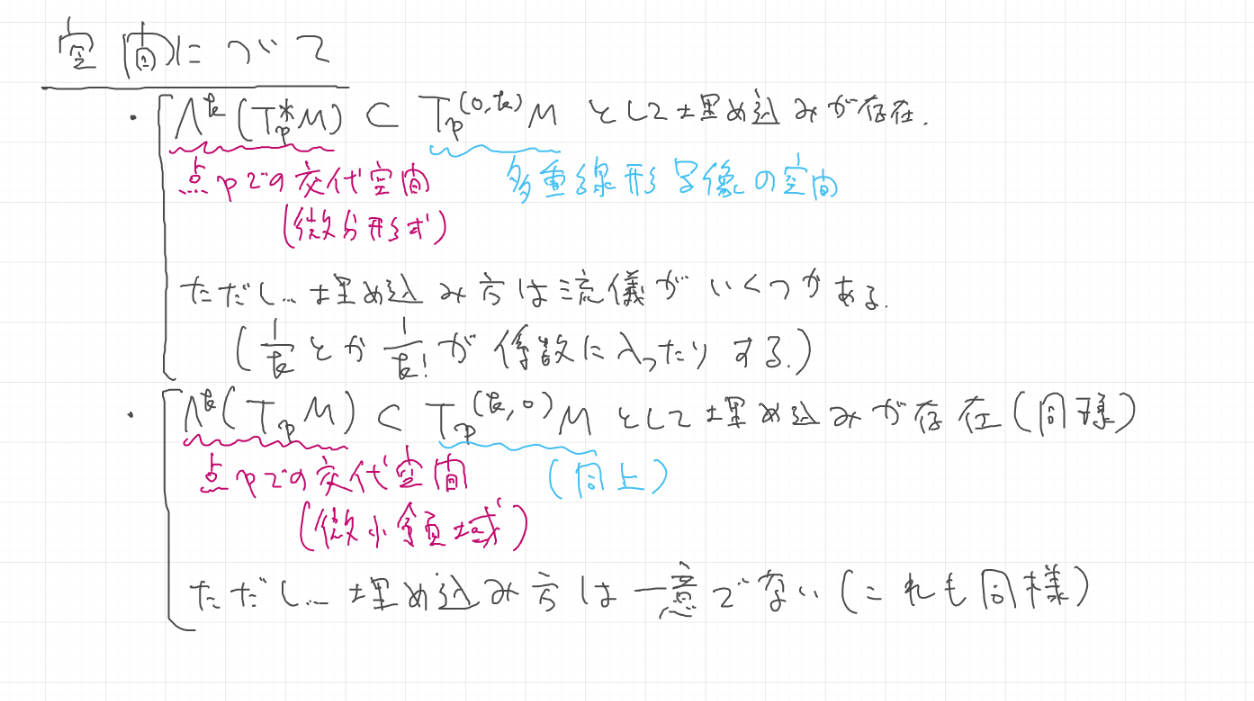 空間について
・Λᵏ(T*ₚM) ⊂ Tₚ⁽⁰,ᵏ⁾M として埋め込みが存在.
点pでの交代空間 多重線形写像の空間
(微分形式)
ただし… 埋め込み方は流儀がいくつかある.
(1/k とか 1/k! が係数に入ったりする.)
・Λᵏ(TₚM) ⊂ Tₚ⁽ᵏ,⁰⁾M として埋め込みが存在(同様)
点pでの交代空間 (同上)
(微小領域)
ただし… 埋め込み方は一意でない(これも同様)